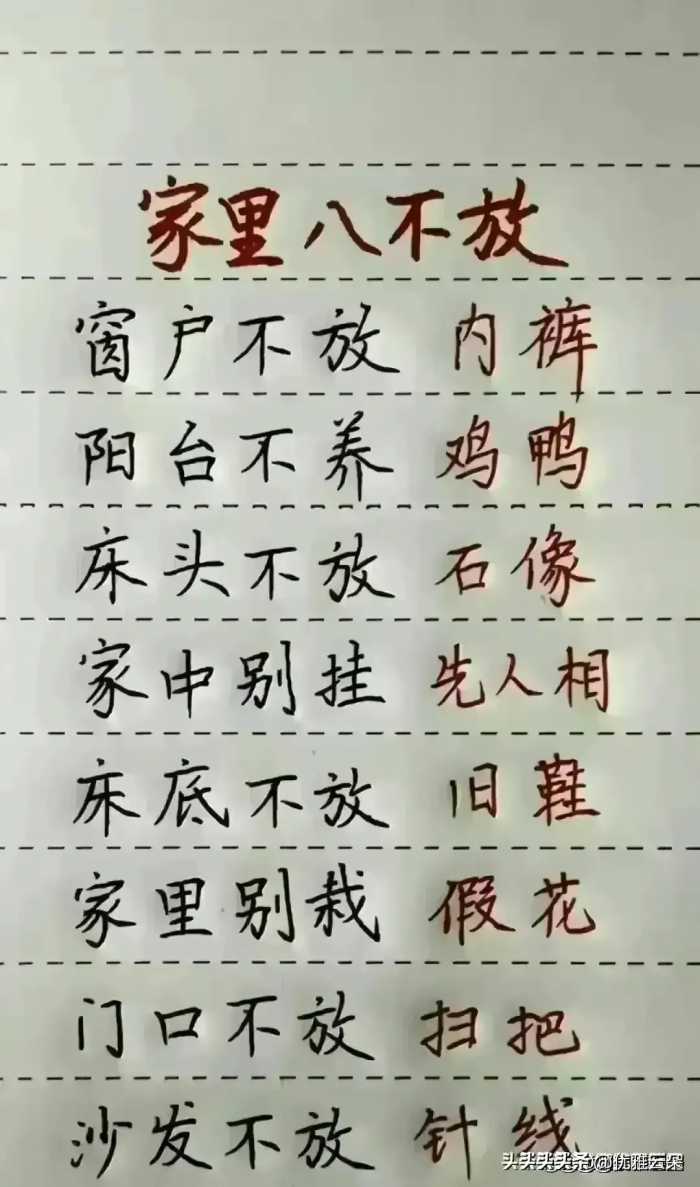 家里八不放
窗户不放 内裤
阳台不养 鸡鸭
床头不放 石像
家中别挂 先人相
床底不放 旧鞋
家里别栽 假花
门口不放 扫把
沙发不放 针线